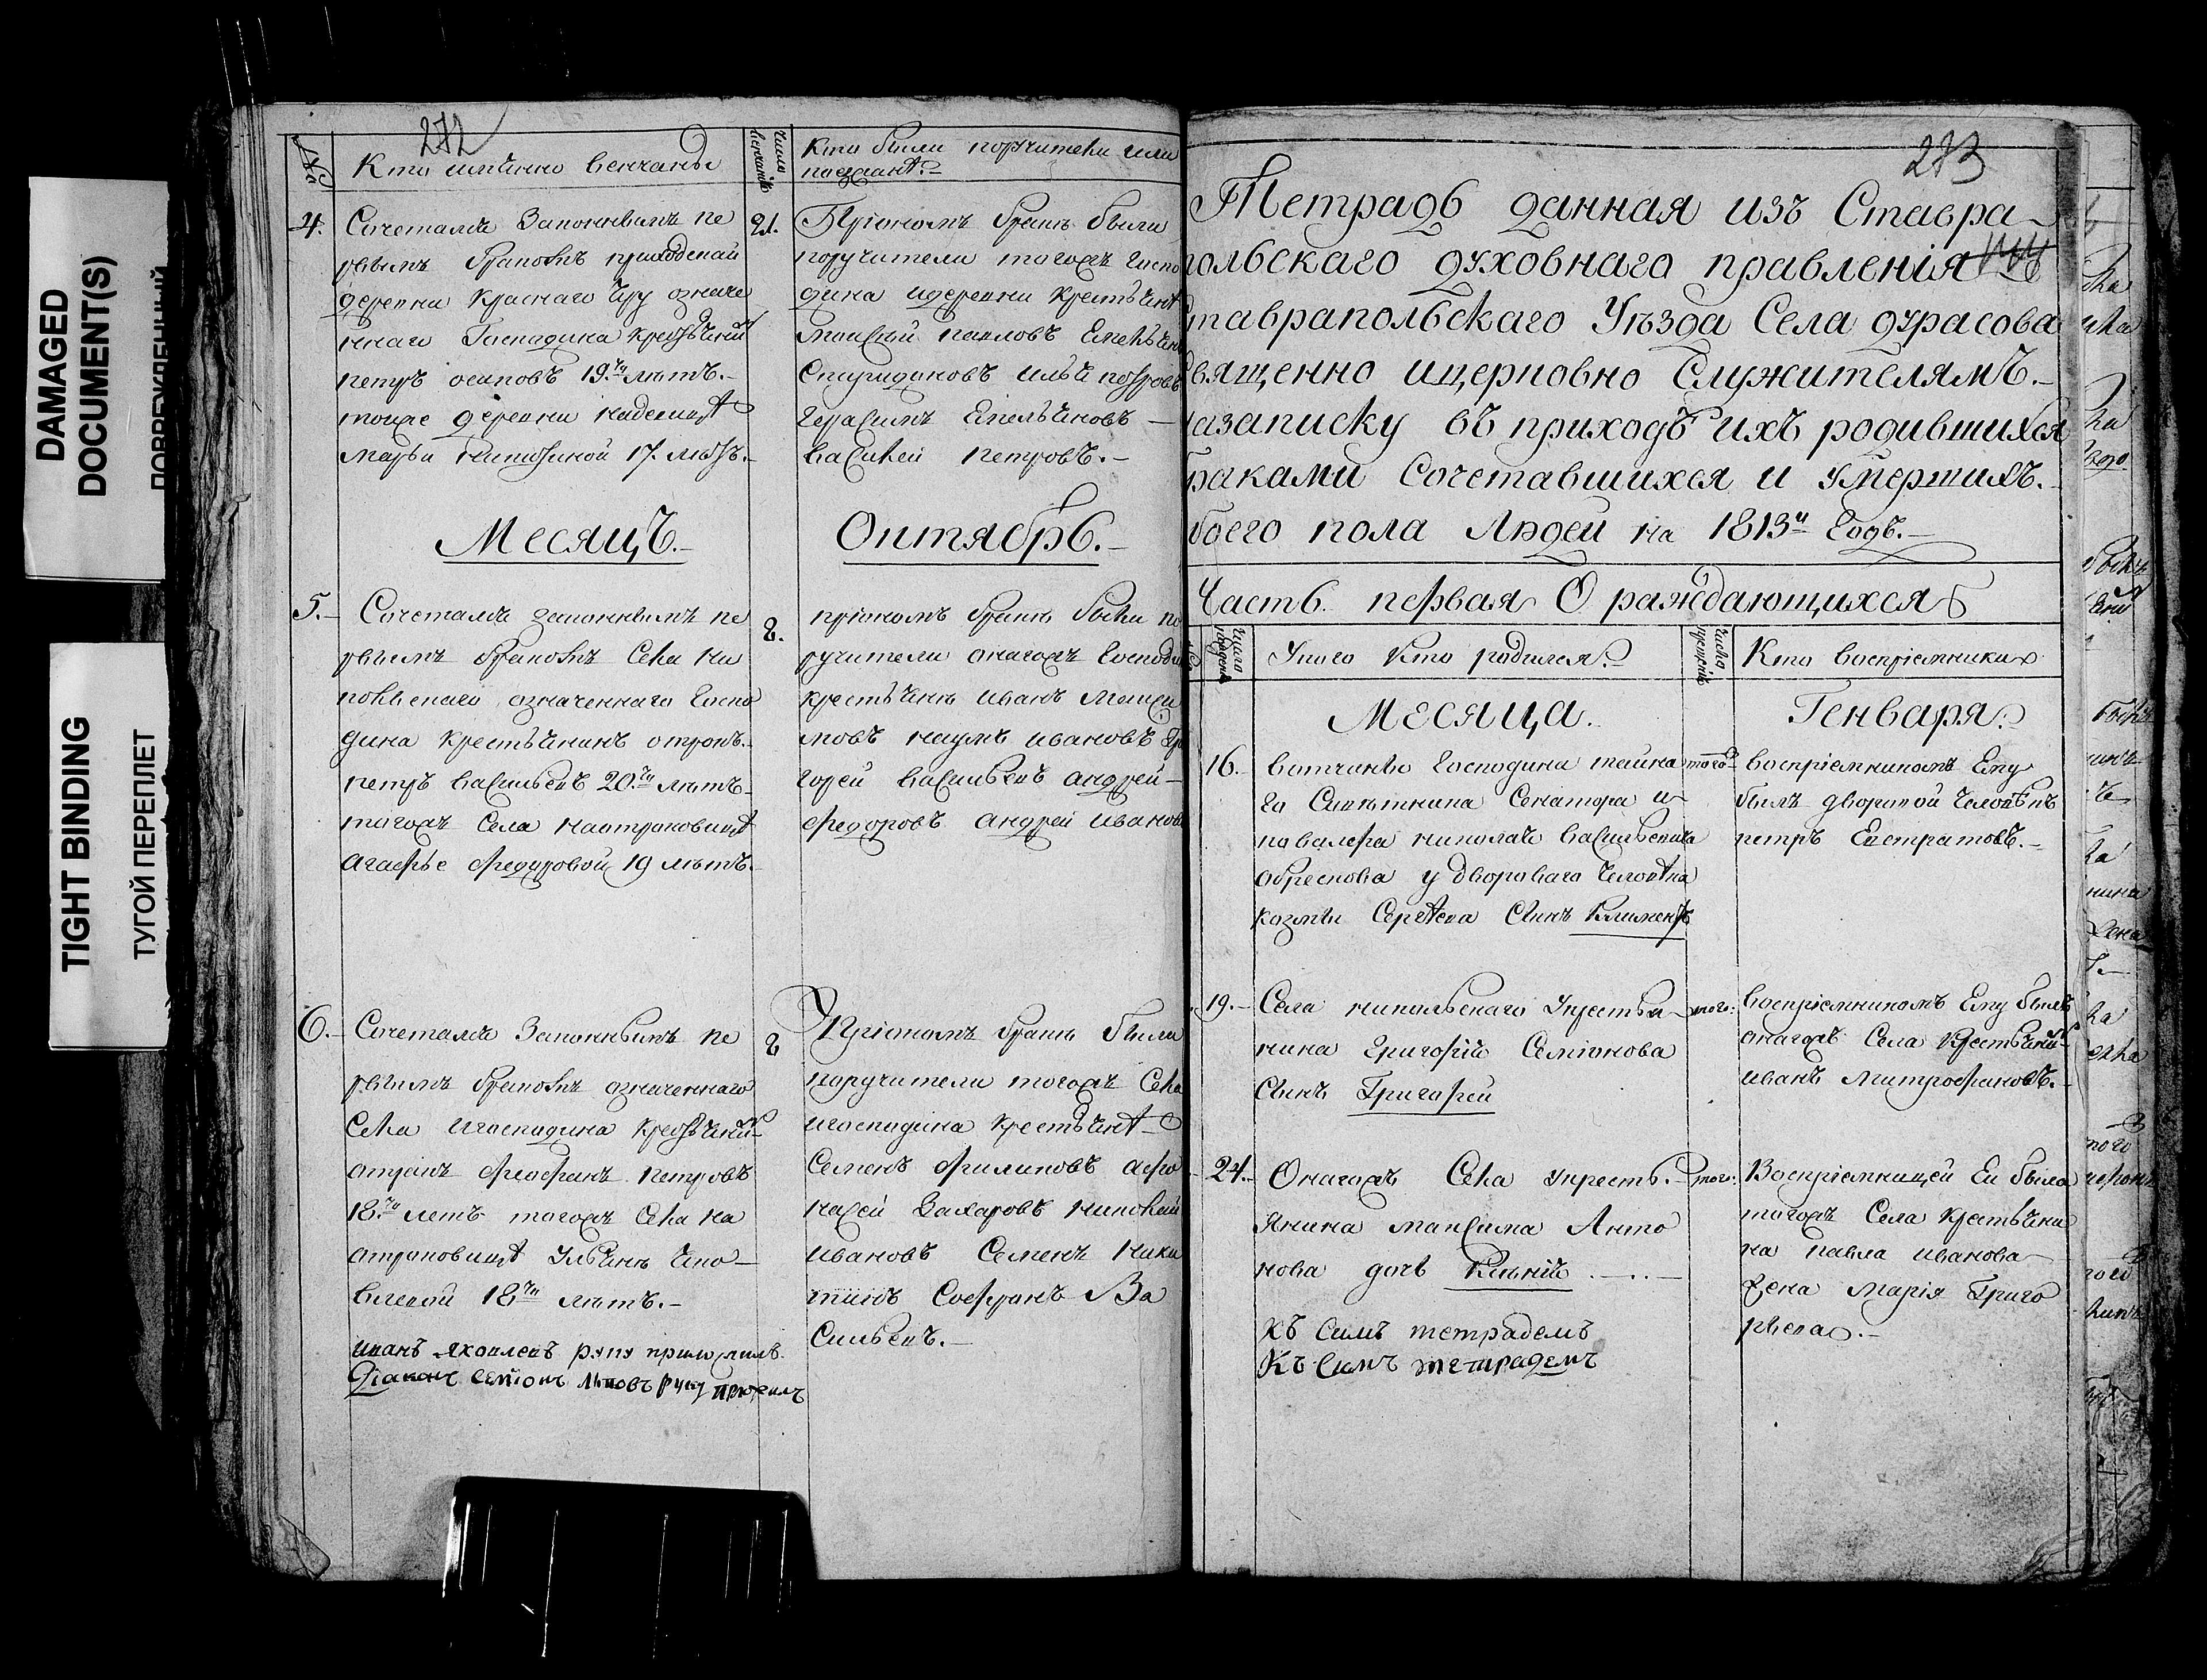 DAMAGED
DOCUMENT(S)
TIGHT BINDING
ТУГОЙ ПЕРЕПЛЕТ
272
№
Кто имянно венчаны
Число венчанія
Кто были поручители или
поезжанѣ
4.
Сочетался законнымъ пе
рвымъ бракомъ приходской
деревни Краснаго Яру означе
ннаго Господина крестьянинъ
петръ осиповъ 19.ти лѣтъ.
тоже деревни надевицѣ
марьи никитиной 17. лѣтъ.
21.
Приономъ бракѣ были
поручители тогожъ госпо
дина идеревни крестьянѣ
моисей павловъ Емельянъ
Спиридоновъ илья петровъ
герасимъ Емельяновъ
василей петровъ.
Месяцъ.
Октябрь.
5.
Сочетался законнымъ пе
рвымъ бракомъ Села ни
кольскаго означеннаго госпо
дина крестьянинъ отрокъ.
петръ васильевъ 20.ти лѣтъ
тогожъ Села наотроковицѣ
агафье федоровой 19 лѣтъ.
8.
приономъ бракѣ были по
ручители онагожъ господи
крестьянѣ иванъ макси
мовъ наумъ ивановъ гри
горей васильевъ андрей
федоровъ андрей иванов
6.
Сочетался законнымъ пе
рвымъ бракомъ означеннаго
Села игосподина крестьянинъ
отрокъ феофанъ петровъ
18.ти летъ тогожъ Села на
отроковицѣ Ульянѣ Яко
влевой 18ти лѣтъ.
8
Приономъ бракѣ были
поручители тогожъ Села
игосподина крестьянѣ
Семенъ филиповъ афо
насей Захаровъ николай
ивановъ Семенъ Ники
тинъ Софронъ Ва
сильевъ.
иванъ яковлевъ руку приложилъ
Діаконъ семіонъ львовъ руку приложилъ
273
Тетрадь данная изъ Ставра
польскаго духовнаго правленія
таврапольскаго Уѣзда Села дурасова
вященно ицерковно Служителямъ.
азаписку въ приходѣ ихъ родившихся
раками Сочетавшихся и умершихъ.
боего пола Людей на 1813й Годъ.
Часть первая О раждающихся
Число рожденія
Укого Кто родился
Число крещенія
Кто воспріемники
Месяца.
Генваря.
16.
вотчины Господина тайна
го Советника Сенатора и
кавалера николая васильевича
обрескова у двороваго человѣка
козмы Сергѣева Сынъ Климентъ
того
воспріемникомъ Ему
былъ дворовой человѣкъ
петръ Евстратовъ.
19.
Села никольскаго Укрестья
нина Григорій Семіонова
Сынъ Григорей
того:
воспріемникомъ Ему былъ
онагожъ Села Крестьянинъ
иванъ митрофановъ.
24.
Онагожъ Села укресть
янина максима Анто
нова дочь Ксѣнія
того:
Воспріемницей Ей была
тогожъ Села крестьяни
на павла иванова
жена марія Григо
рьева.
Къ Симъ тетрадемъ
Къ Симъ тетрадемъ